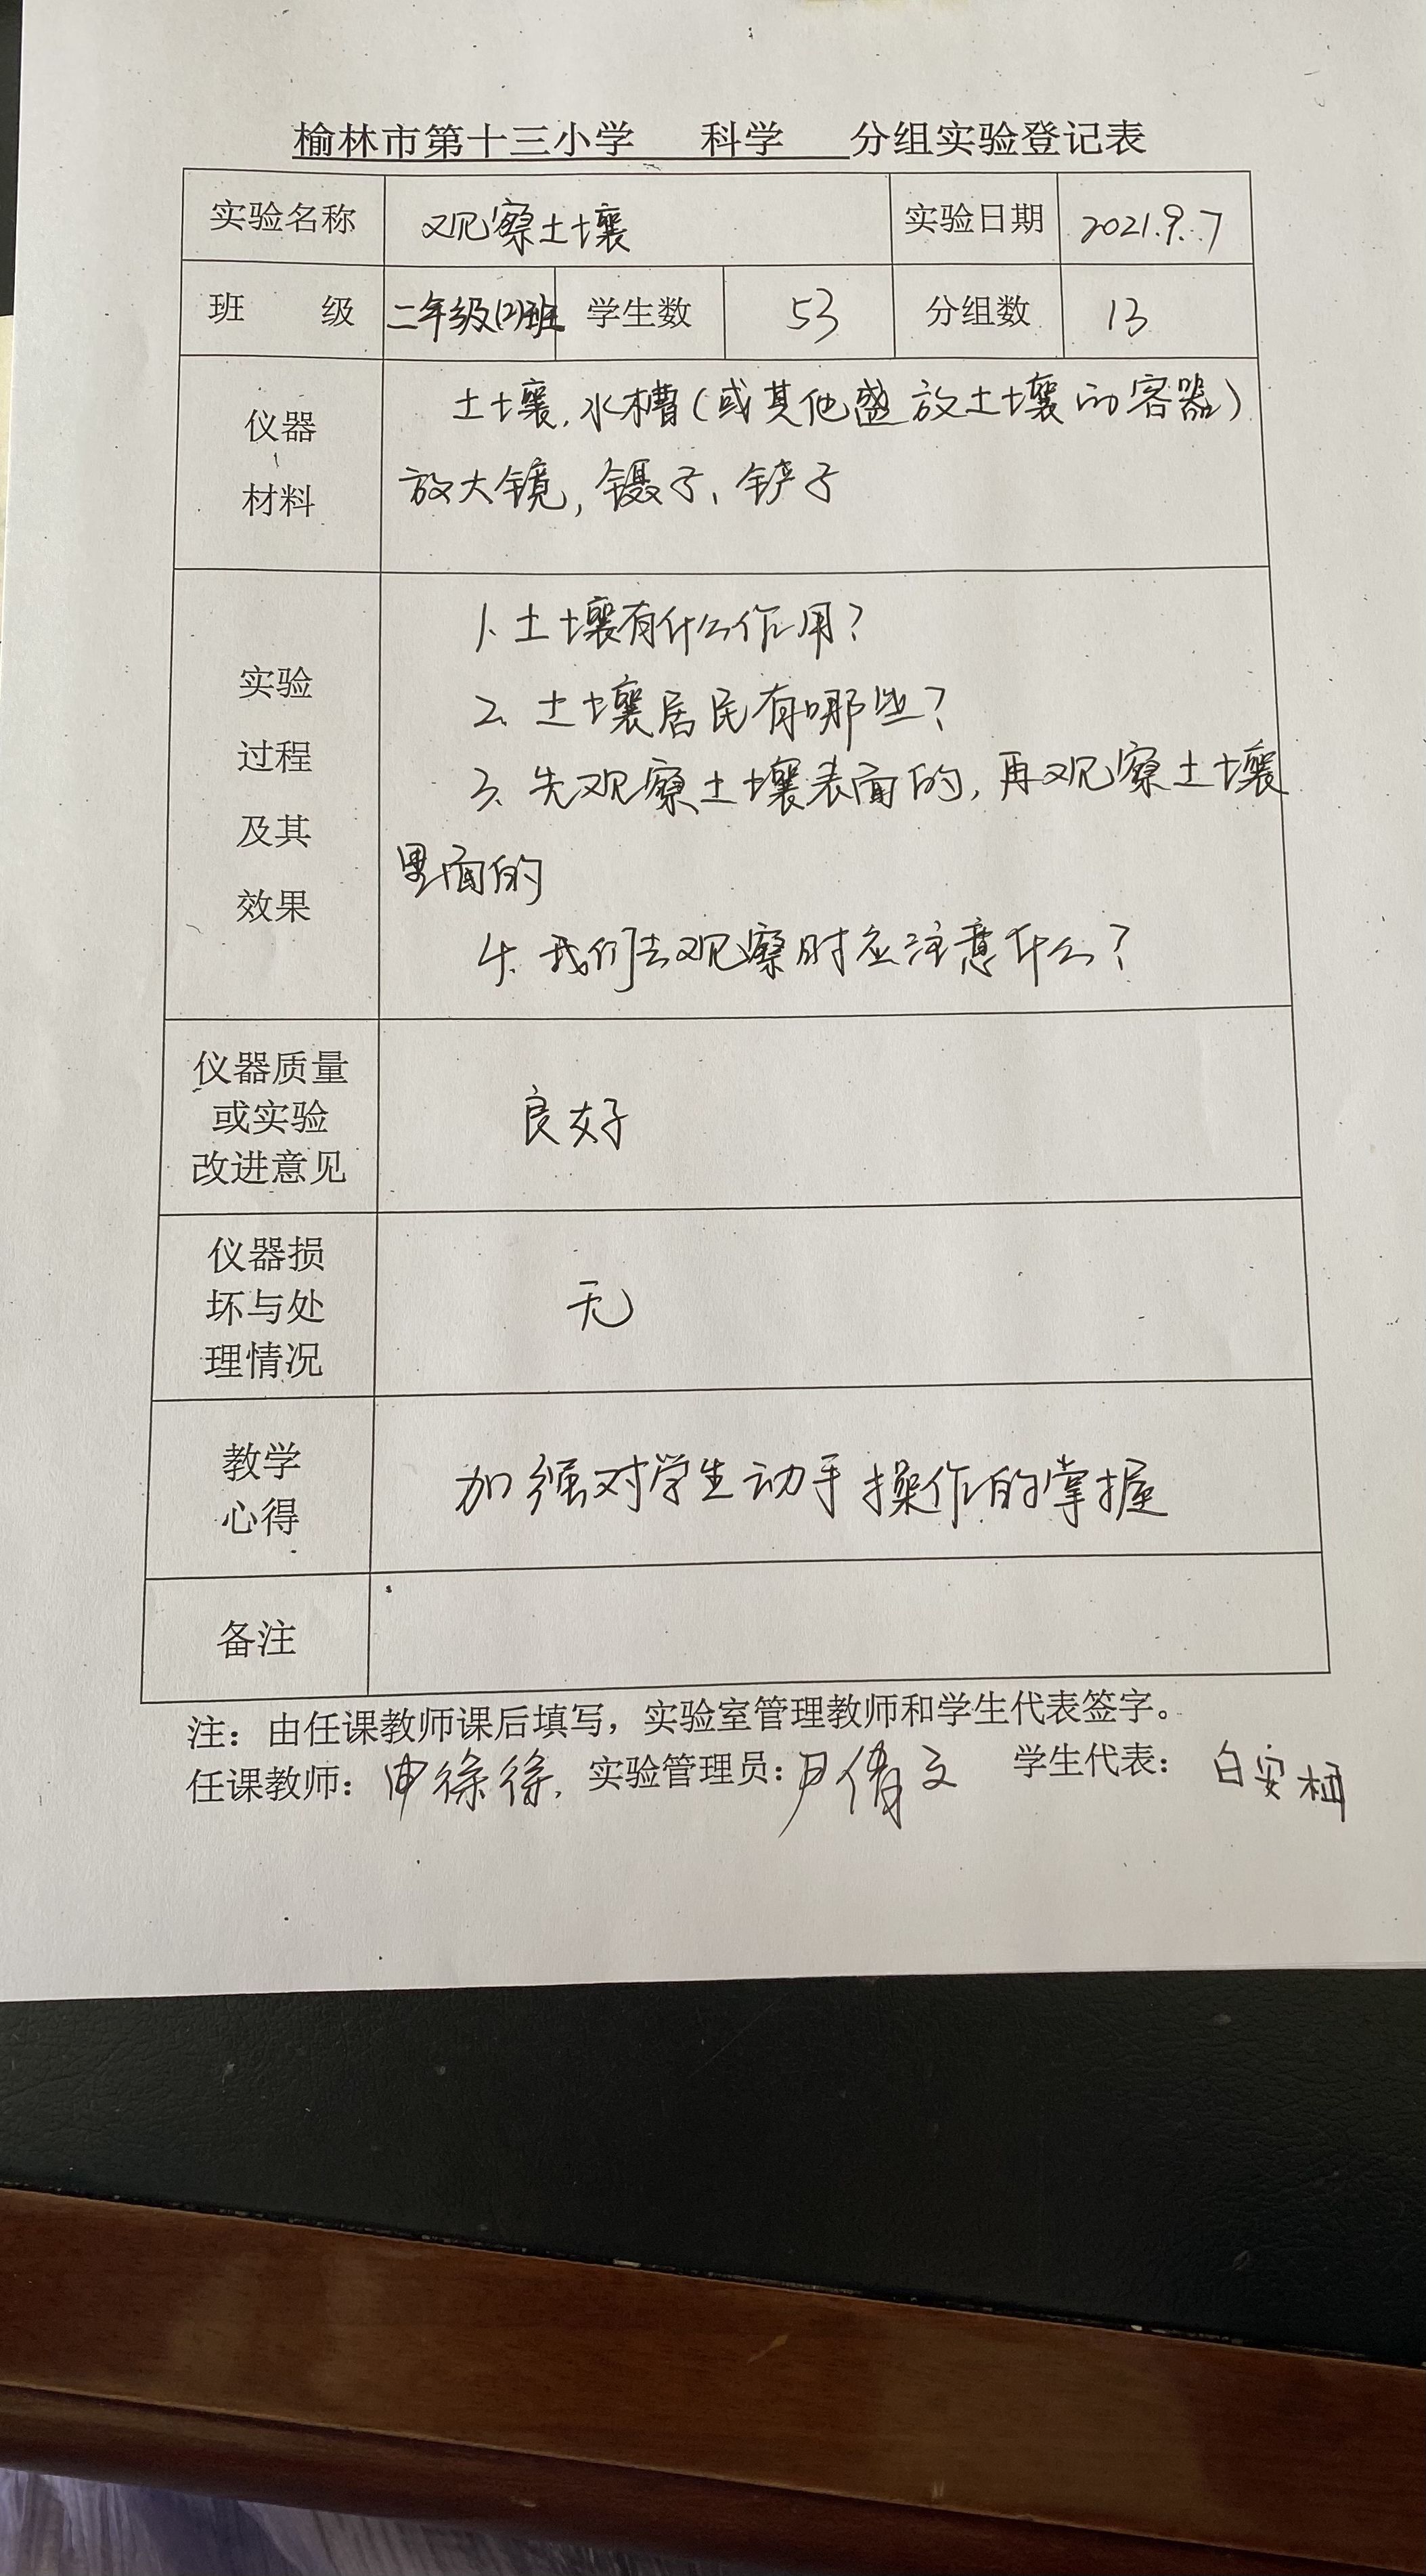 榆林市第十三小学 科学 分组实验登记表
实验名称 观察土壤 实验日期 2021.9.7
班 级 二年级(2)班 学生数 53 分组数 13
仪器 材料
土壤,水槽(或其他盛放土壤的容器)
放大镜,镊子、铲子
实验 过程 及其 效果
1. 土壤有什么作用?
2. 土壤居民有哪些?
3. 先观察土壤表面的,再观察土壤
里面的
4. 我们去观察时应注意什么?
仪器质量
或实验
改进意见
良好
仪器损
坏与处
理情况
无
教学
心得
加强对学生动手操作的掌握
备注
注:由任课教师课后填写,实验室管理教师和学生代表签字。
任课教师: 申徐徐. 实验管理员: 尹倩文 学生代表: 白安